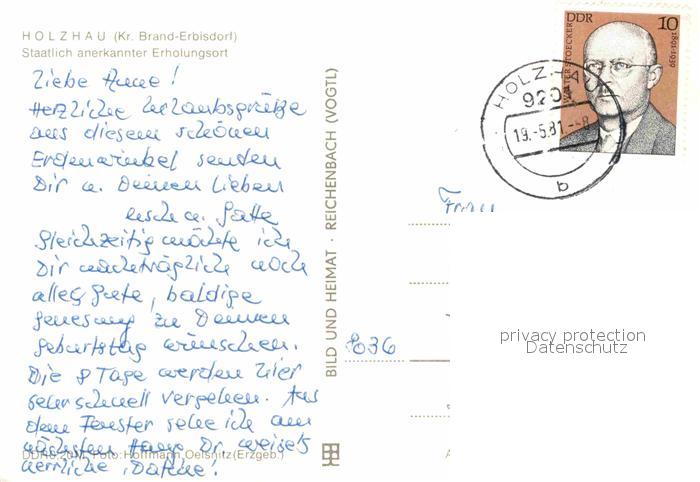 HOLZHAU (Kr. Brand-Erbisdorf)
Staatlich anerkannter Erholungsort
Liebe Anne!
Herzliche Urlaubsgrüße
aus diesem schönen
Erdenwinkel senden
Dir u. Deinen Lieben
u. Gatte
Gleichzeitig möchte ich
Dir nachträglich noch
alles Gute, baldige
Genesung zu Deinem
Geburtstag wünschen.
Die 8 Tage werden hier
sehr schnell vergehen. Aus
dem Fenster sehe ich am
nächsten Hang Dr.
herrliche
DDR 0,20 M Foto: Hoffmann Oelsnitz (Erzgeb.)
BILD UND HEIMAT · REICHENBACH (VOGTL)
DDR 10
WALTER STOECKER 1891-1939
HOLZHAU
9201
19.-5.81.-8
b
Frau
8036
privacy protection
Datenschutz